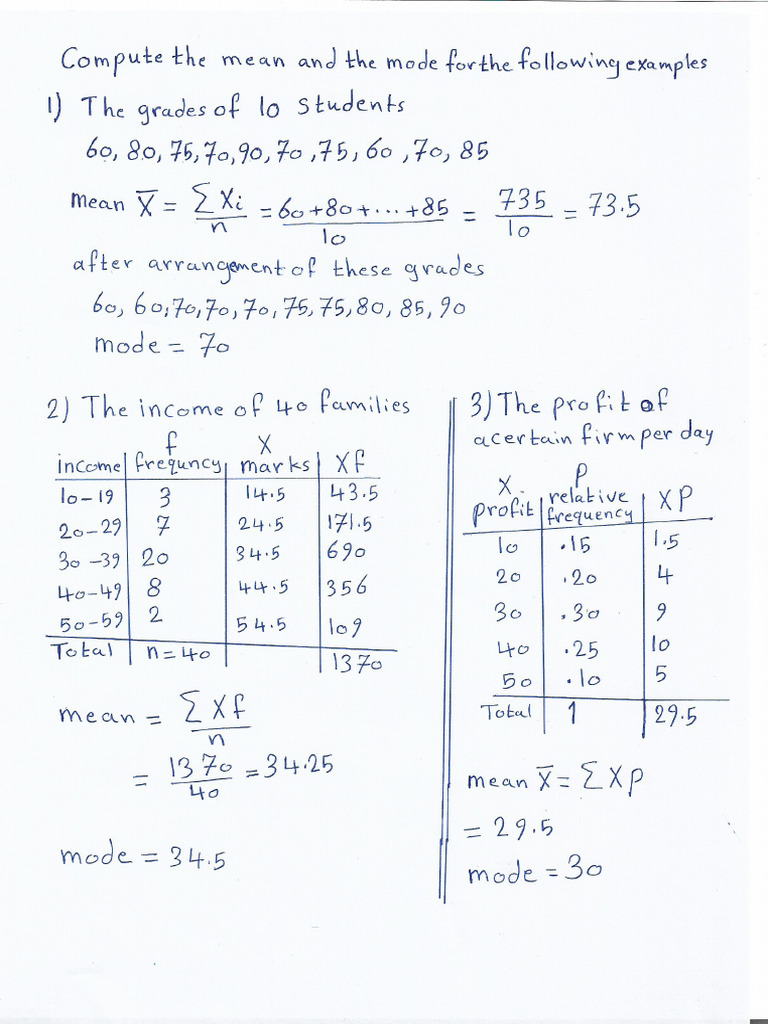 Compute the mean and the mode for the following examples
1) The grades of 10 students
60, 80, 75, 70, 90, 70, 75, 60, 70, 85
mean X̄ = ∑Xi/n = 60+80+...+85/10 = 735/10 = 73.5
after arrangement of these grades
60, 60, 70, 70, 70, 75, 75, 80, 85, 90
mode = 70
2) The income of 40 families
f X
income frequncy marks Xf
10-19 3 14.5 43.5
20-29 7 24.5 171.5
30-39 20 34.5 690
40-49 8 44.5 356
50-59 2 54.5 109
Total n=40 1370
mean = ∑Xf/n
= 1370/40 = 34.25
mode = 34.5
3) The profit of
acertain firm per day
X P
profit relative frequency XP
10 .15 1.5
20 .20 4
30 .30 9
40 .25 10
50 .10 5
Total 1 29.5
mean X̄ = ∑XP
= 29.5
mode = 30